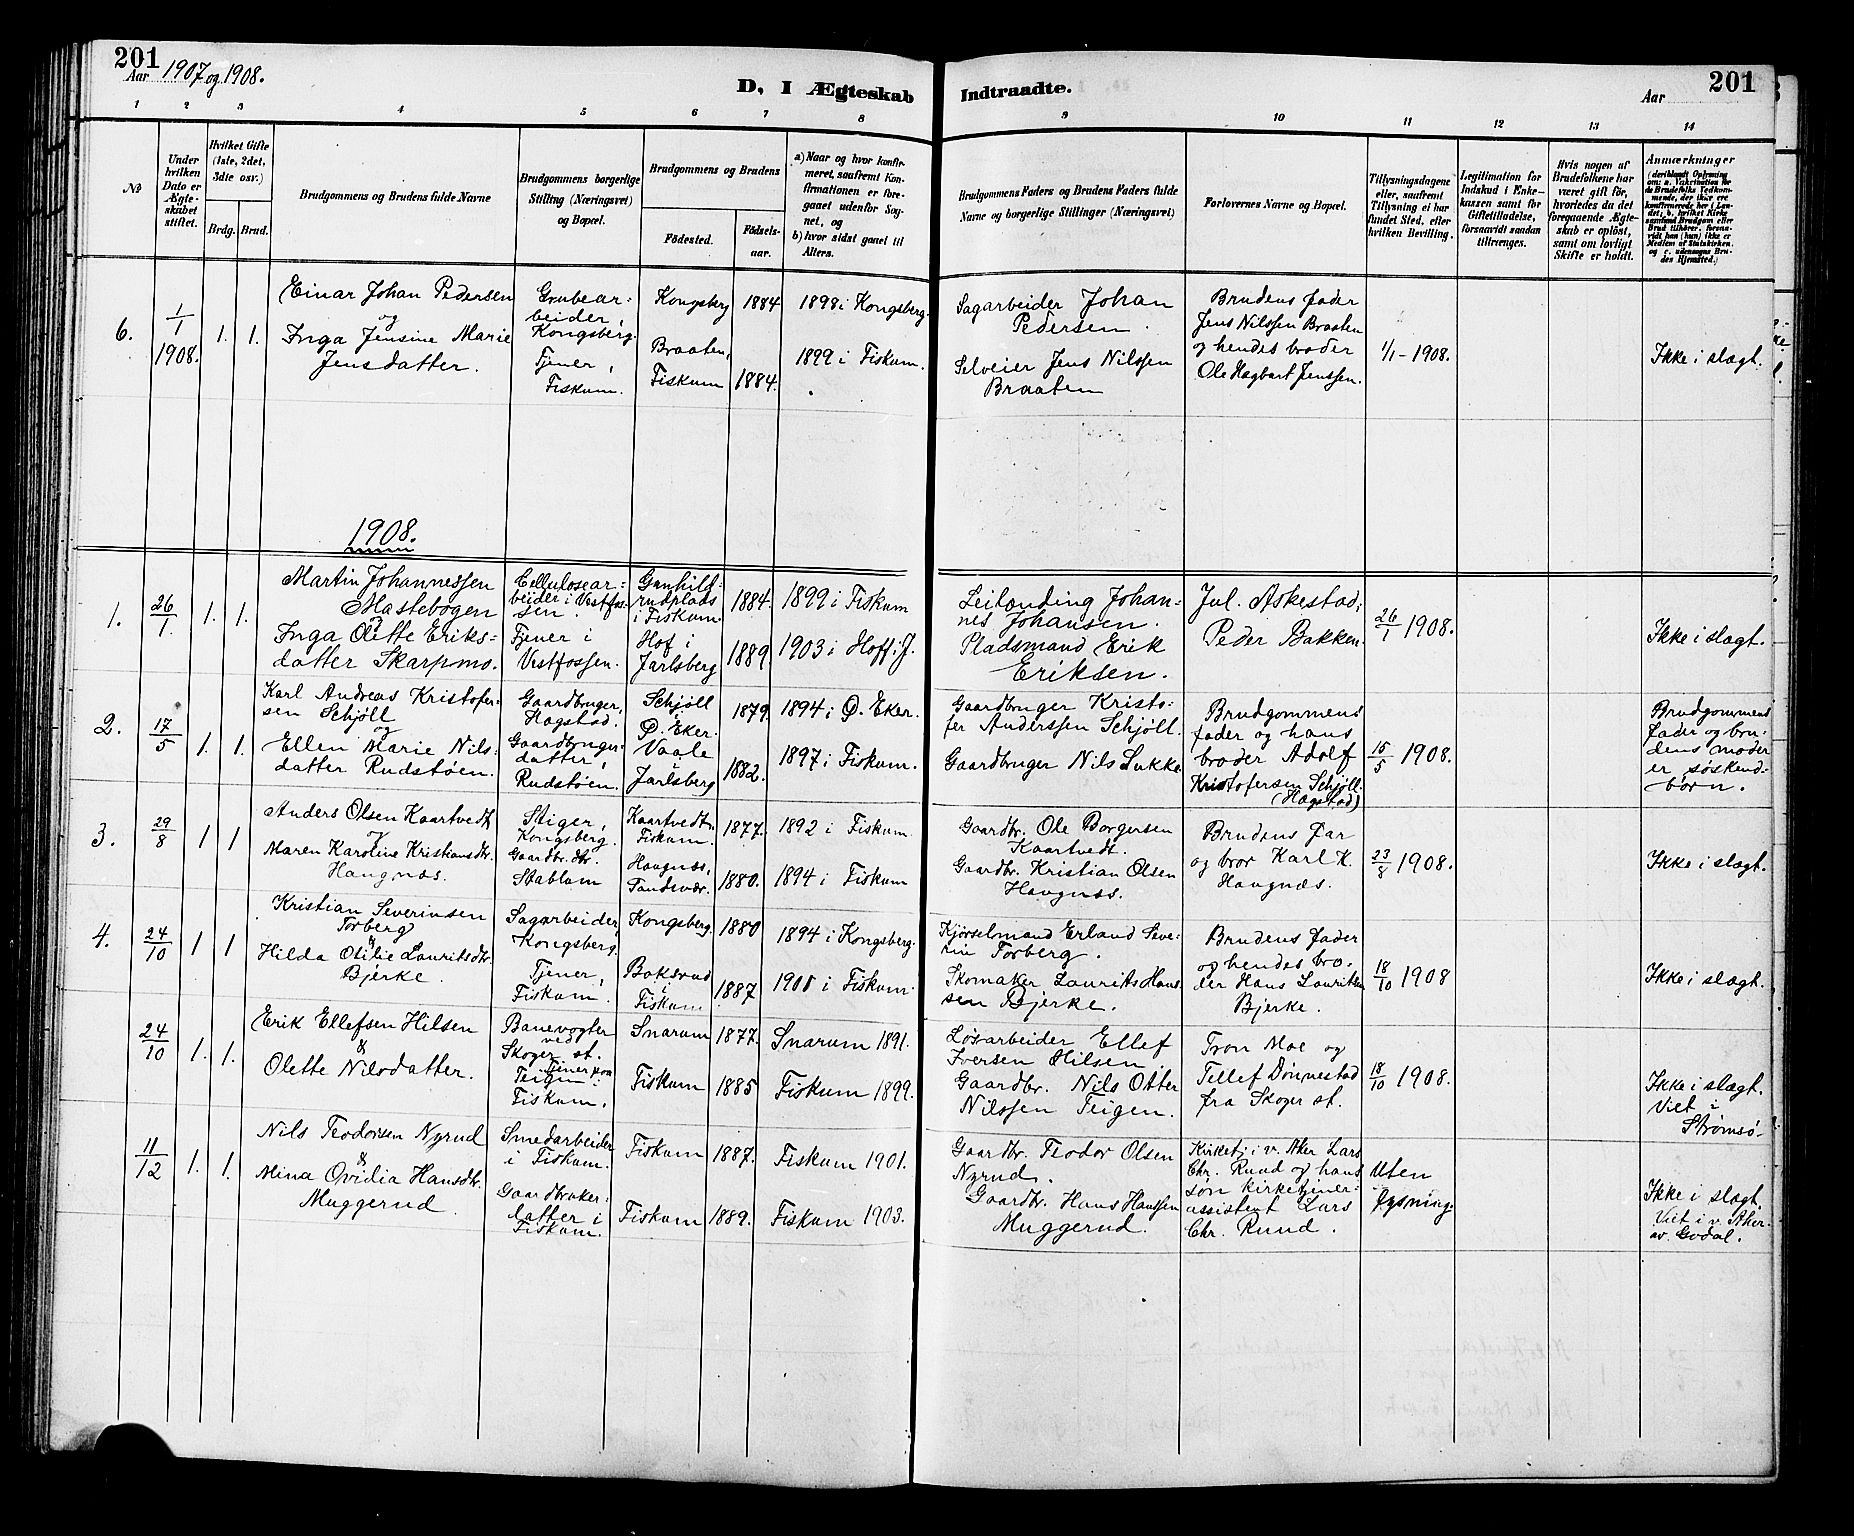 201
Aar 1907 og 1908.
D, I Ægteskab Indtraadte.
Aar
201
1 2 3 4 5 6 7 8 9 10 11 12 13 14
No
Under hvilken Dato er Ægteskabet stiftet.
Hvilket Gifte (1ste, 2det, 3die osv.)
Brdg. Brud.
Brudgommens og Brudens fulde Navne
Brudgommens borgerlige Stilling (Næringsvei) og Bopæl.
Brudgommens og Brudens
Fødested.
Fødselsaar.
a) Naar og hvor konfirmeret, saafremt Konfirmationen er foregaaet udenfor Sognet, og
b) hvor sidst gaaet til Alters.
Brudgommens Faders og Brudens Faders fulde Navne og borgerlige Stillinger (Næringsvei)
Forlovernes Navne og Bopæl.
Tillysningsdagene eller, saafremt Tillysning ei har fundet Sted, efter hvilken Bevilling.
Legitimation for Indskud i Enkekassen samt for Giftetilladelse, forsaavidt saadan tiltrænges.
Hvis nogen af Brudefolkene har været gift før, hvorledes da det foregaaende Ægteskab er opløst, samt om lovligt Skifte er holdt.
Anmærkninger
6.
1/1 1908.
1. 1.
Einar Johan Pedersen
og
Inga Jensine Marie
Jensdatter.
Grubear-
beider,
Kongsberg.
Tjener,
Fiskum.
Kongsberg 1884
Braaten,
Fiskum 1884.
1898 i Kongsberg.
1899 i Fiskum.
Sagarbeider Johan
Pedersen.
Selveier Jens Nilssen
Braaten
Brudens fader
Jens Nilssen Braaten
og hendes broder
Ole Hagbart Jenssen.
1/1 - 1908.
Ikke i slægt.
1908.
1.
26/1.
1. 1.
Martin Johannessen
Mastebogen
Inga Olette Eriks-
datter Skarpmo.
Cellulosear-
beider i Vestfos-
sen.
Tjener i
Vestfossen.
Gunhild-
rudplads
i Fiskum
1884.
Hof i
Jarlsberg
1889
1899 i Fiskum
1903 i Hoff i J.
Leilænding Johan-
nes Johansen.
Pladsmand Erik
Eriksen.
Jul. Askestad,
Peder Bakken.
26/1 1908.
Ikke i slægt.
2.
17/5
1. 1.
Karl Andreas Kristofer-
sen Schjøll
og
Ellen Marie Nils-
datter Rudstøen.
Gaardbruger,
Hagstad.
Gaardbruger-
datter,
Rudstøen.
Schjøll
Ø. Eker.
1879.
Vaale
i
Jarlsberg
1882.
1894 i Ø. Eker.
1897 i Fiskum.
Gaardbruger Kristo-
fer Anderssen Schjøll.
Gaardbruger Nils Lukke
Brudgommens
fader og hans
broder Adolf
Kristofersen Schjøll.
(Hagstad)
15/5 1908.
Brudgommens
fader og bru-
dens moder
er søskend-
børn.
3.
29/8
1 1
Anders Olsen Kaartvedt
Maren Karoline Kristiansdtr.
Haugnæs.
Stiger,
Kongsberg.
Gaardbr. dtr.
Stablum
Kaartvedt
Fiskum.
1877.
Haugnæs,
Sandsvær.
1880.
1892 i Fiskum.
1894 i Fiskum
Gaardbr. Ole Borgersen
Kaartvedt.
Gaardbr. Kristian Olsen
Haugnæs.
Brudens far
og bror Karl K.
Haugnæs.
23/8 1908.
Ikke i slægt.
4.
24/10
1 1
Kristian Severinsen
Torberg
&
Hilda Otilie Lauritsdtr.
Bjerke.
Sagarbeider
Kongsberg.
Tjener,
Fiskum.
Kongsberg. 1880
Baksrud
i
Fiskum
1887
1894 i Kongsberg.
1901 i Fiskum.
Kjørselsmand Erland Seve-
rin Torberg.
Skomaker Laurits Hans-
sen Bjerke.
Brudens fader
og hendes bro-
der Hans Lauritsen
Bjerke.
18/10 1908
Ikke i slægt.
24/10
1. 1.
Erik Ellefsen Hilsen
&
Olette Nilsdatter.
Banevogter
ved
Skoger st.
Tjener paa
Teigen i
Fiskum.
Snarum 1877.
Fiskum 1885
Snarum 1891.
Fiskum 1899.
Løsarbeider Ellef
Iversen Hilsen
Gaardbr. Nils Otter
Nilssen Teigen.
Tron Moe og
Tellef Dønnestad
fra Skoger st.
18/10 1908.
Ikke i slægt.
Viet i
Strømsø.
11/12
1. 1.
Nils Teodorsen Nyrud
&
Mina Ovidia Hansdtr.
Muggerud.
Smedarbeider
i Fiskum.
Gaardbruker-
datter i
Fiskum.
Fiskum 1887.
Fiskum 1889.
Fiskum 1901.
Fiskum 1903.
Gaardbr. Teodor Olsen
Nyrud.
Gaardbr. Hans Hanssen
Muggerud.
Kirketj. i v. Aker Lars
Chr. Ruud og hans
søn kirketjener-
assistent Lars
Chr. Ruud.
Uten
lysning.
Ikke i slægt.
Viet i v. Aker
av. Godal.